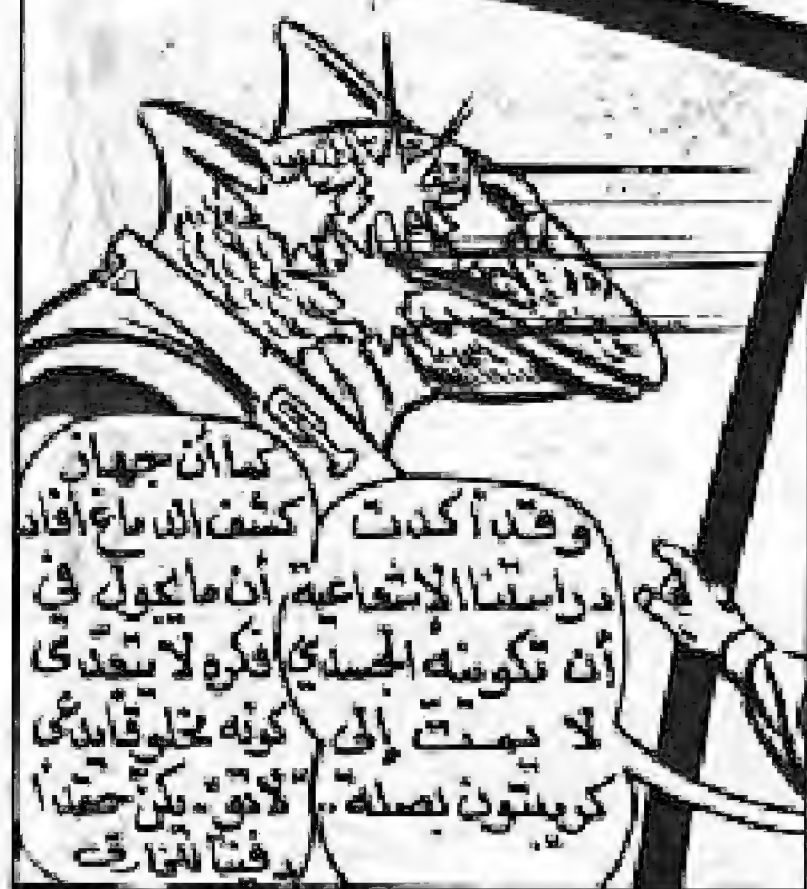 وقد أكدت
دراستنا الإشعاعية
أن تكوينه الجسدي
لا يمت إلى
كريبتون بصلة..
كما أن جهاز
كشف الدماغ أفاد
أن ما يجول في
فكره لا يتعدى
كونه مخلوقا بدئي
حقدا
دفينا للخارق